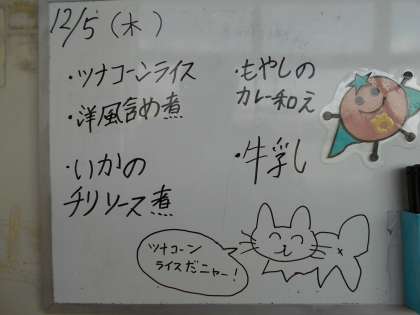 12/5（木）
・ツナコーンライス
・洋風含め煮
・いかの
チリソース煮
・もやしの
カレー和え
・牛乳
ツナコーン
ライスだニャー!